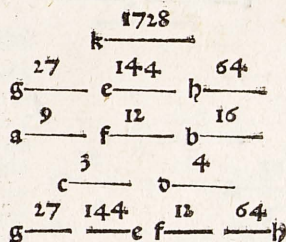 1728
k
27 144 64
g e h
9 12 16
a f b
3 4
c d
27 144 12 64
g e f h